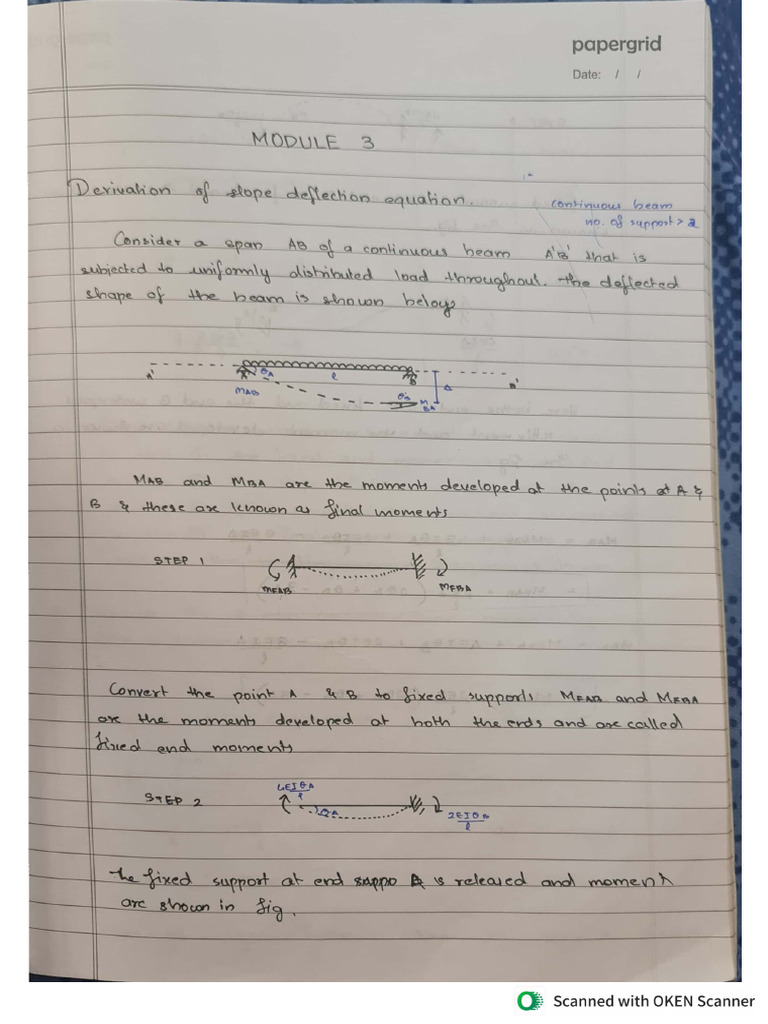 papergrid
Date: / /
MODULE 3
Derivation of slope deflection equation.
continuous beam
no. of support > 2
Consider a span AB of a continuous beam A'B' that is
subjected to uniformly distributed load throughout. the deflected
shape of the beam is shown below
A' θA l B Δ B'
MAB θB MBA
MAB and MBA are the moments developed at the points at A &
B & these are known as final moments
STEP 1
MFAB MFBA
Convert the point A & B to fixed supports MFAB and MFBA
are the moments developed at both the ends and are called
fixed end moments
4EIθA/l
STEP 2 θA 2EIθ/l
the fixed support at end A is released and moment
are shown in fig.
Scanned with OKEN Scanner